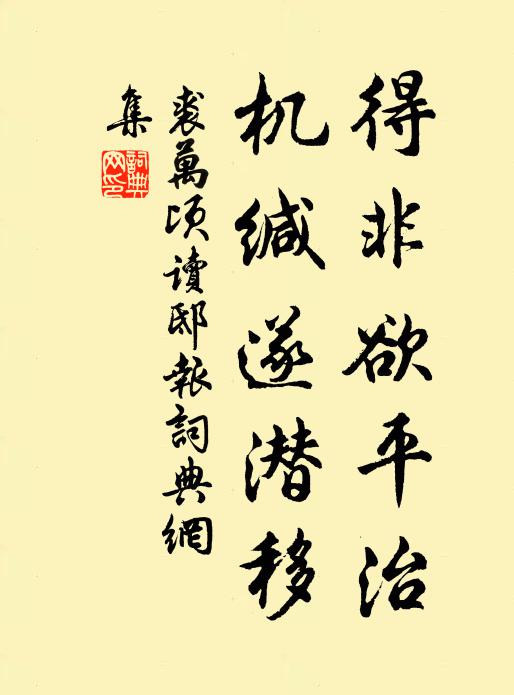 得非欲平治
机缄遂潜移
裘萬顷讀邸報詞典網
集
詞典
网